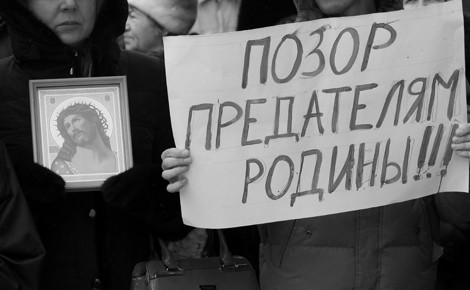 ПОЗОР
ПРЕДАТЕЛЯМ
РОДИНЫ!!!